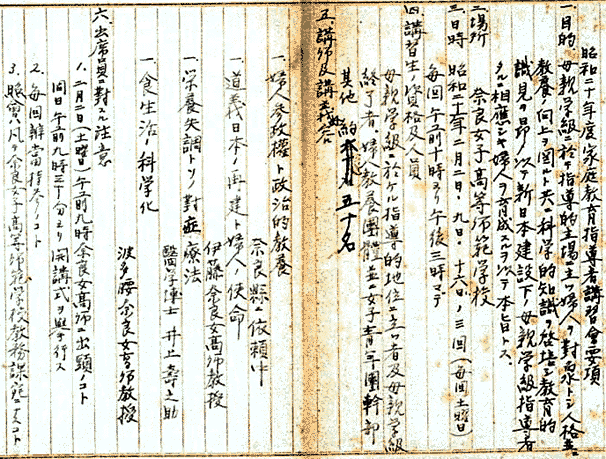 昭和二十年度家庭教育指導者講習會要項
一、目的 母親学級ニ於テ指導的立場ニ立ツ婦人ヲ対象トシ人格並ニ
教養ノ向上ヲ図ルト共ニ科学的知識ヲ啓培シ教育的
識見ヲ昂メ以テ新日本建設下ノ母親学級指導者
タルニ相應シキ婦人ヲ育成スルヲ以テ本旨トス、
二、場所 奈良女子高等師範学校
三、日時 昭和二十一年二月二日、九日、十六日ノ三回(毎回土曜日)
毎回午前十時ヨリ午後三時マデ
四、講習生ノ資格及人員
母親学級ニ於ケル指導的地位ニ立ツ者及母親学級
終了者、婦人教養團體並ニ女子青年團幹部
其他 約 五十名
五、講師及講義
一、婦人参政權ト政治的教養
奈良縣ニ依頼中
一、道義日本ノ再建ト婦人ノ使命
伊藤奈良女高師教授
一、栄養失調トソノ対症療法
醫学博士 井上壽之助
一、食生活ノ科学化
波多腰奈良女高師教授
六、出席員ニ対スル注意
1. 二月二日(土曜日)午前九時奈良女高師ニ出頭ノコト
同日午前九時三十分ヨリ開講式ヲ挙行ス
2. 毎回辨當持参ノコト
3. 照會ハ凡テ奈良女子高等師範学校教務課宛ノコト